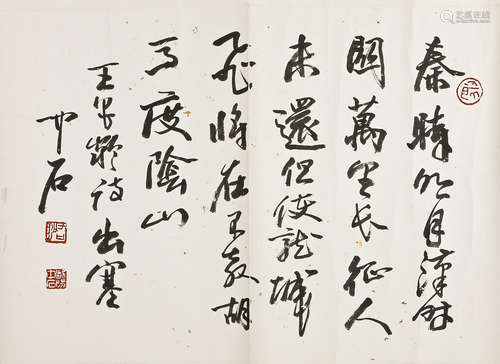 秦時明月漢時
關萬里長征人
未還但使龍城
飛將在不教胡
馬度陰山
王昌齡詩出塞
中石